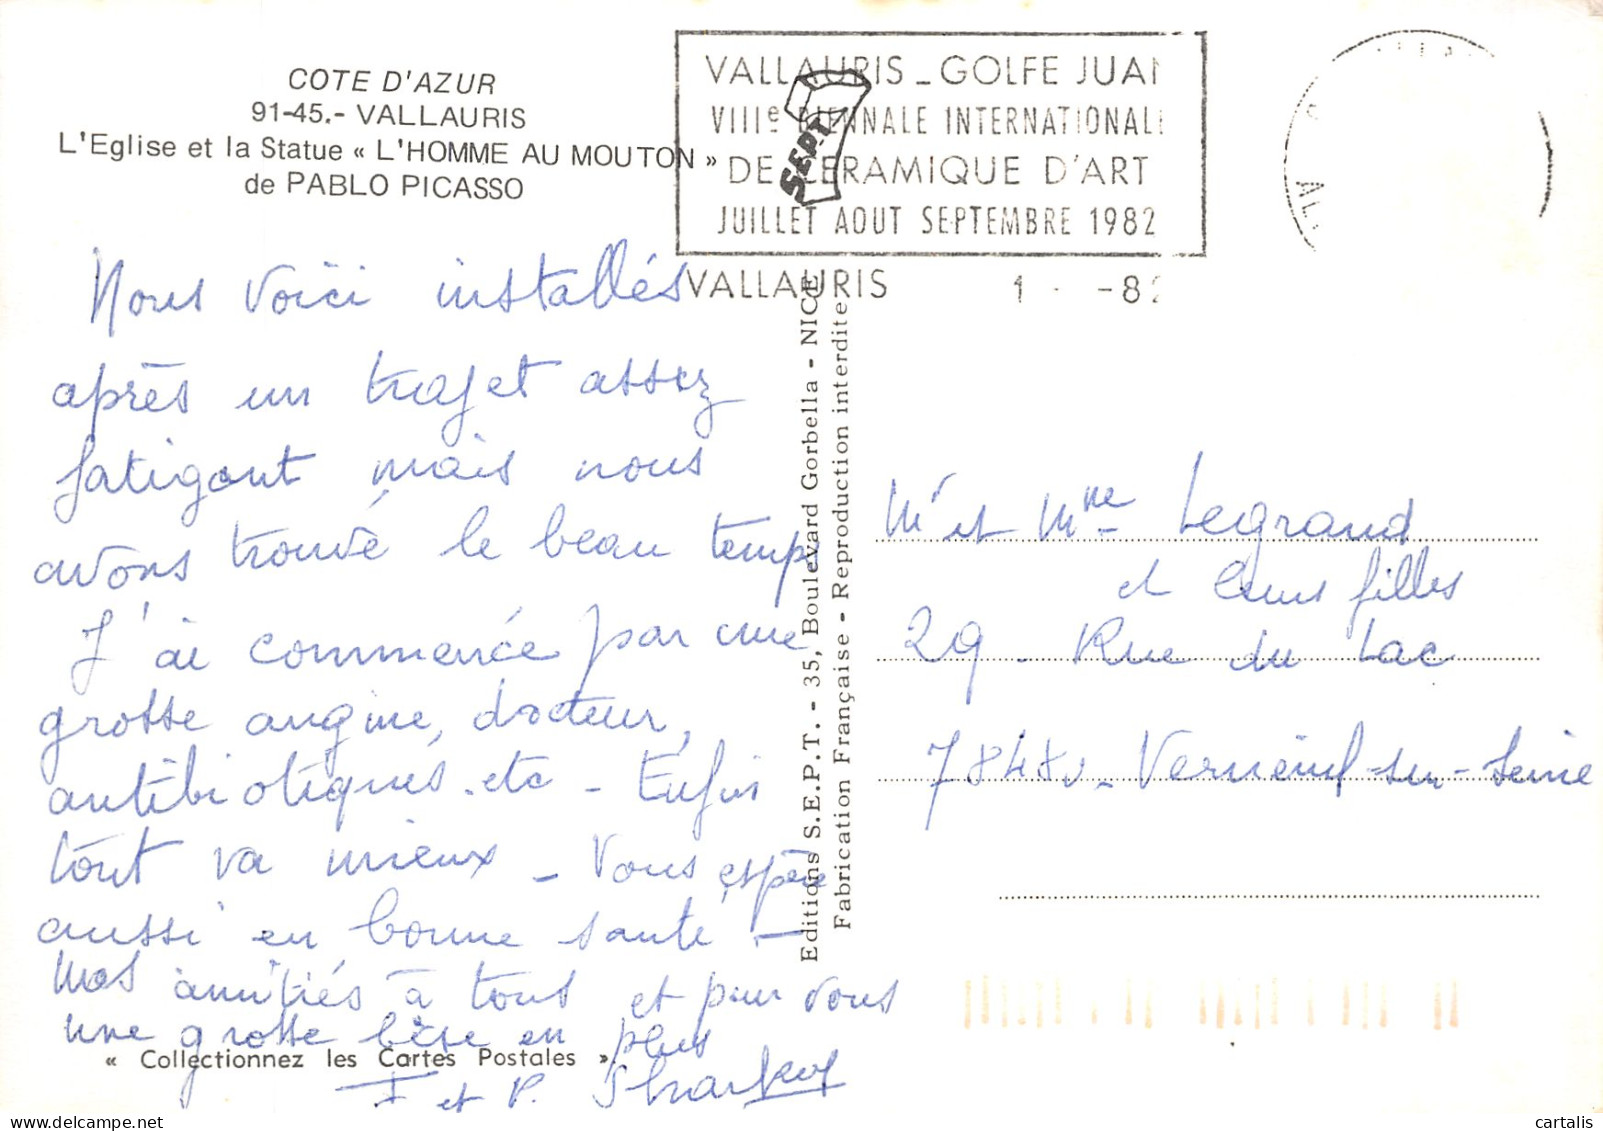 COTE D'AZUR
91-45.- VALLAURIS
L'Eglise et la Statue « L'HOMME AU MOUTON »
de PABLO PICASSO
VALLAURIS _ GOLFE JUAN
VIIIe BIENNALE INTERNATIONALE
DE CERAMIQUE D'ART
JUILLET AOUT SEPTEMBRE 1982
SEPT
VALLAURIS 1 - -82
AL
Nous voici installés
après un trajet assez
fatigant mais nous
avons trouvé le beau temps
J'ai commencé par une
grosse angine, docteur,
antibiotiques, etc - Enfin
tout va mieux - Vous espère
aussi en bonne santé -
Mes amitiés à tous et pour vous
une grosse bise en plus
« Collectionnez les Cartes Postales »
et P.
Editions S.E.P.T. - 35, Boulevard Gorbella - NICE
Fabrication Française - Reproduction interdite
Mr et Mme Legrand
et leurs filles
29 - Rue du Lac
78480 - Verneuil-sur-Seine
cartalis